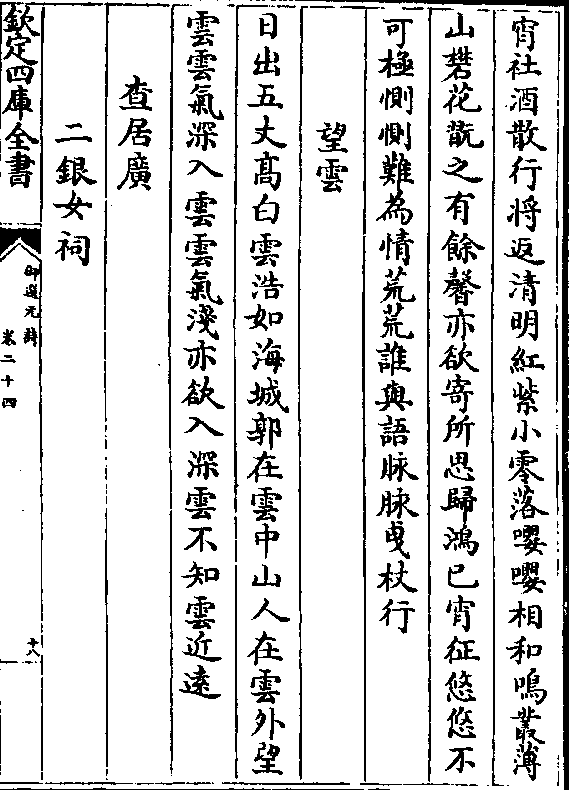 宵社酒散行將返清明紅紫小零落嚶嚶相和鳴叢薄
山礬花翫之有餘馨亦欲寄所思歸鴻已宵征悠悠不
可極惻惻難為情荒荒誰與語脉脉曵杖行
望雲
日出五丈髙白雲浩如海城郭在雲中山人在雲外望
雲雲氣深入雲雲氣淺亦欲入深雲不知雲近逺
查居廣
二銀女祠
欽定四庫全書
御選元詩
卷二十四
十八